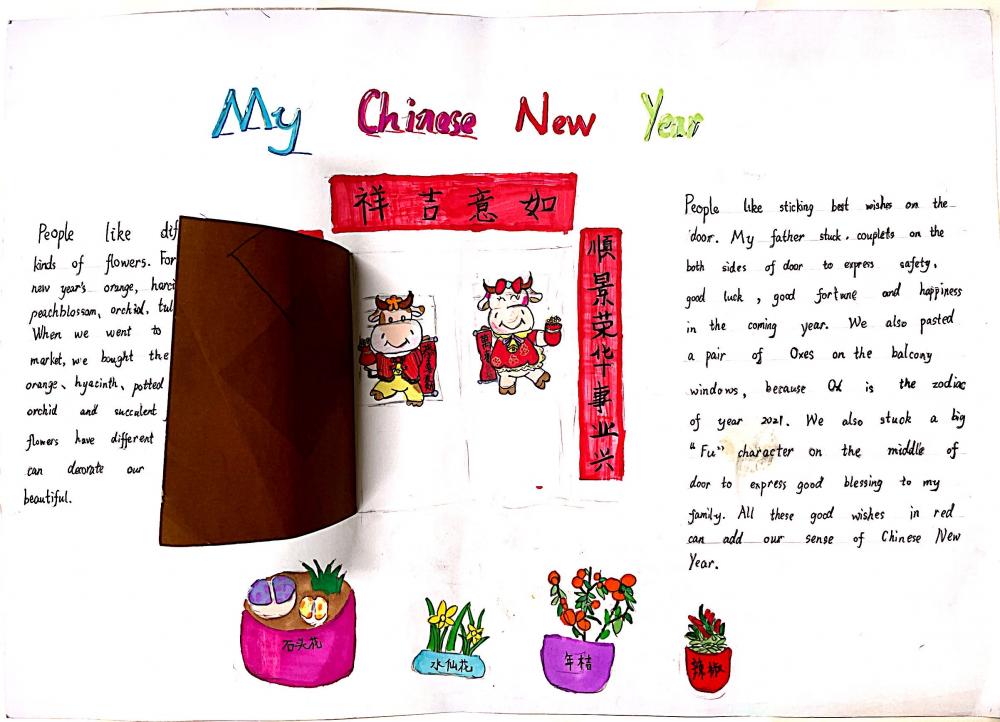 My Chinese New Year
祥吉意如
People like dif
kinds of flowers. For
new year's orange, harci
peachblossom, orchid, tul
When we went to
market, we bought the
orange、hyacinth, potted
orchid and succulent
flowers have different
can decorate our
beautiful.
順景荣华事业兴
People like sticking best wishes on the
door. My father stuck couplets on the
both sides of door to express safety,
good luck, good fortune and happiness
in the coming year. We also pasted
a pair of Oxes on the balcony
windows, because Ox is the zodiac
of year 2021. We also stuck a big
"Fu" character on the middle of
door to express good blessing to my
family. All these good wishes in red
can add our sense of Chinese New
Year.
石头花
水仙花
年桔
辣椒